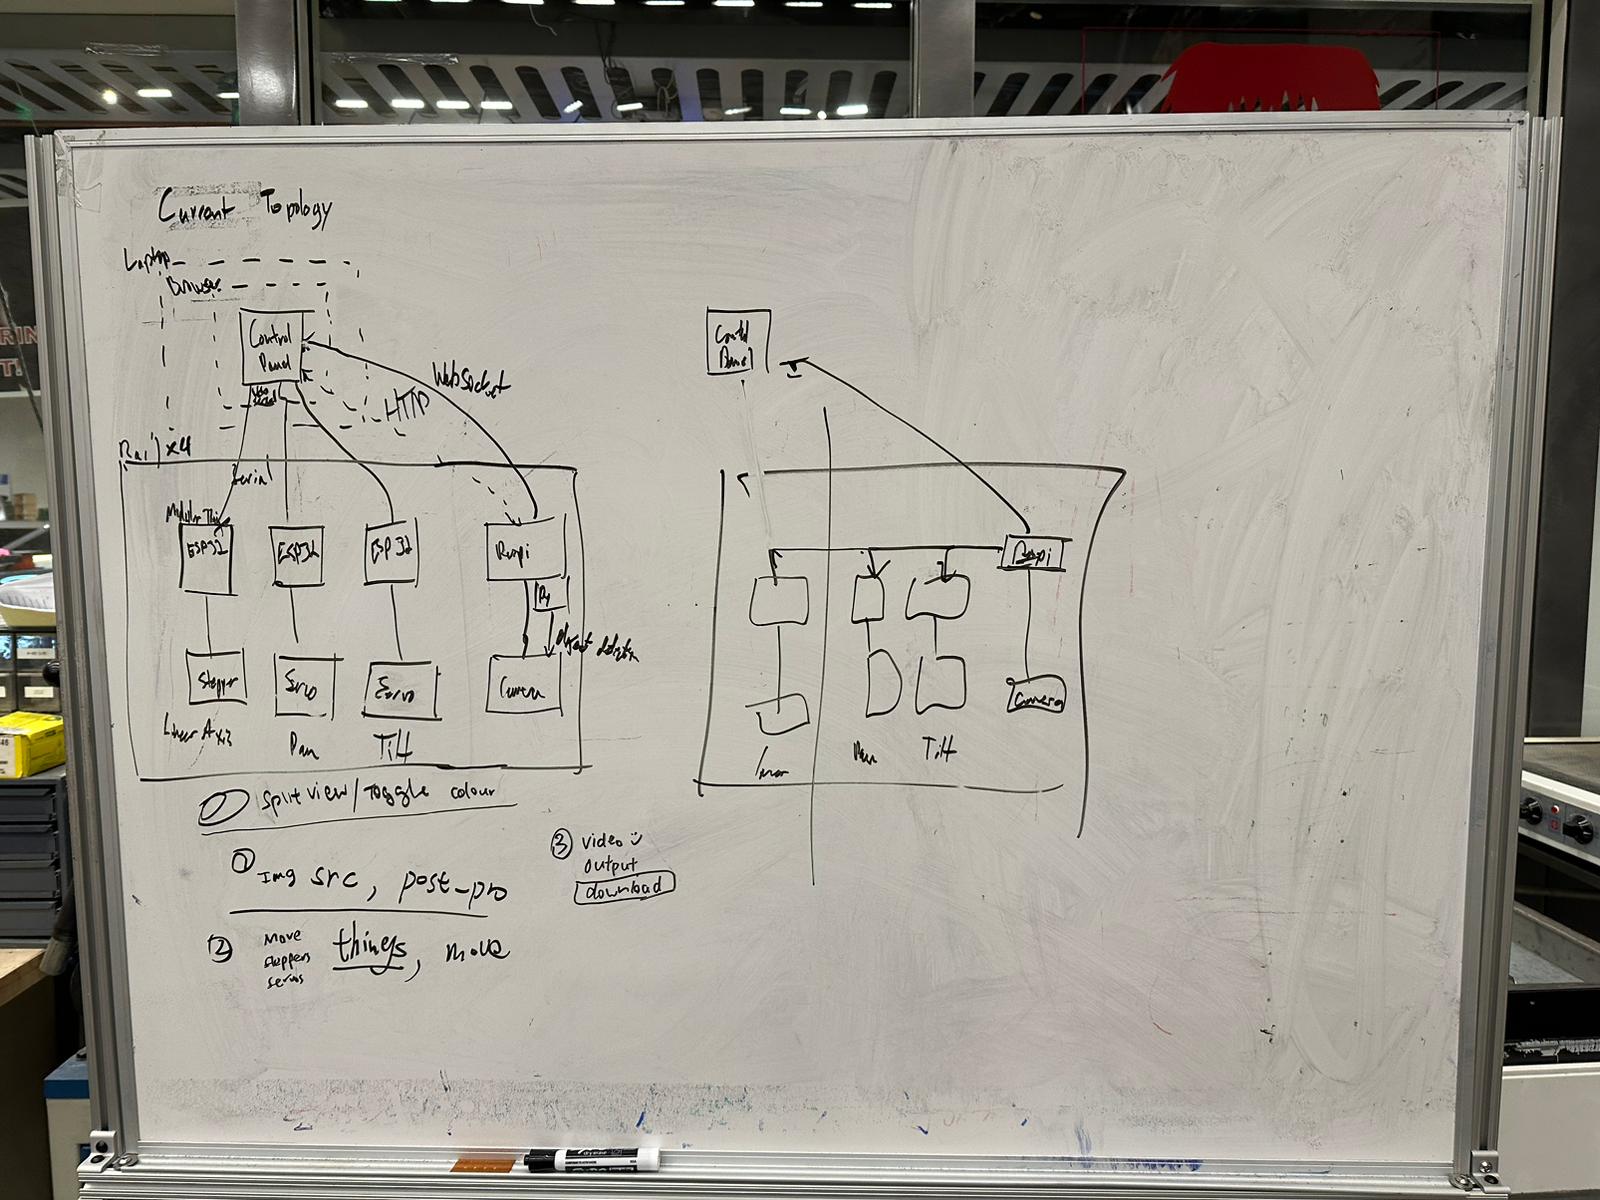 Current Topology
Laptop
Browser
Control
Panel
Web
Serial
HTTP
WebSocket
Rail x4
Serial
ESP32
ESP32
ESP32
Raspi
Py
object detection
Stepper
Servo
Servo
Camera
Linear Axis
Pan
Tilt
Split view / Toggle colour
1
Img src, post-pro
2
Move
steppers
servos
things, move
3
video
output
download
Control
Panel
Raspi
Camera
Pan
Tilt